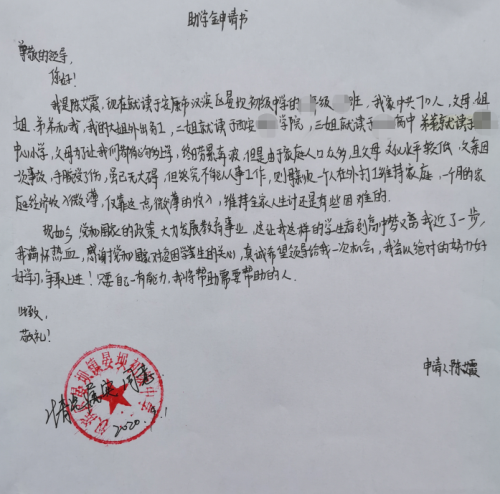 助学金申请书
尊敬的领导,
您好!
我是陈艾霞,现在就读于安康市汉滨区晏坝初级中学的 级 班,我家中共7口人,父母、姐
姐、弟弟和我,我的大姐外出务工,二姐就读于西安 学院,三姐就读于 高中,弟弟就读于
中心小学,父母为了让我们都能够上学,终日劳累奔波,但是由于家庭人口众多,且父母文化水平较低,父亲因
一次事故,手腕受伤,虽已无大碍,但终究不能从事工作,则靠母一个人在外务工维持家庭,一个月的家
庭经济收入微薄,仅靠这点微薄的收入,维持全家人生计还是有些困难的。
现如今,党和国家的政策大力发展教育事业,这让我这样的学生看到高中梦又离我近了一步,
我满怀热血,感谢党和国家对贫困学生的关心,真诚希望领导给我一次机会,我会以绝对的努力好
好学习,争取上进!只要自己一有能力,我将帮助需要帮助的人。
此致,
敬礼!
申请人陈霞
汉滨区晏坝镇晏坝初级中学
情况属实 同意
2020.9.1